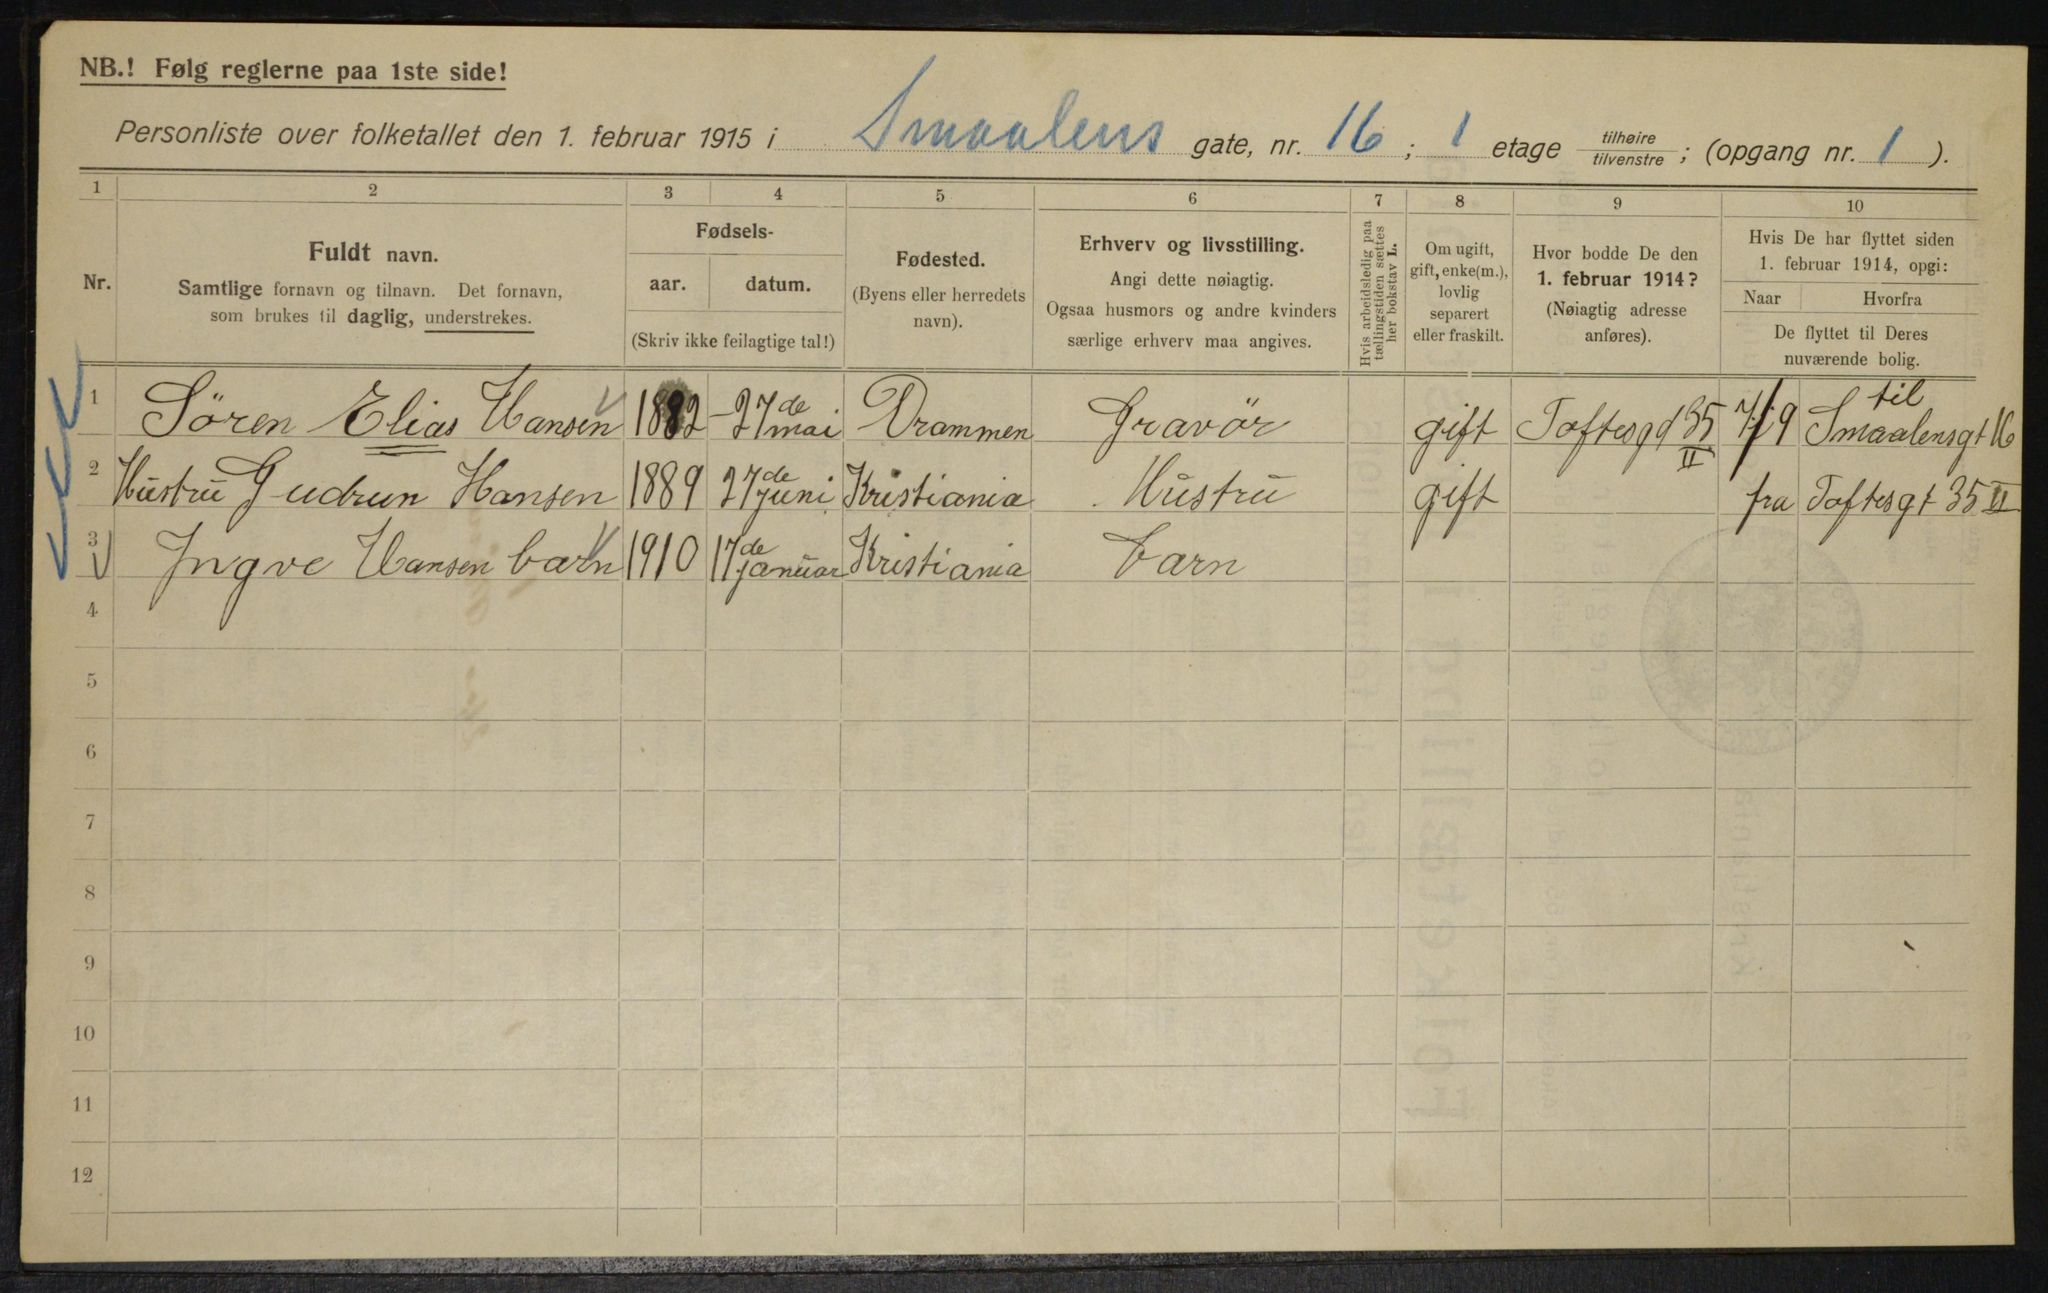 NB.! Følg reglerne paa 1ste side!
Personliste over folketallet den 1. februar 1915 i Smaalens gate, nr. 16 ; 1 etage tilhøire/tilvenstre ; (opgang nr. 1 ).
1 2 3 4 5 6 7 8 9 10
Nr.
Fuldt navn.
Samtlige fornavn og tilnavn. Det fornavn,
som brukes til daglig, understrekes.
Fødsels-
aar. datum.
(Skriv ikke feilagtige tal!)
Fødested.
(Byens eller herredets
navn).
Erhverv og livsstilling.
Angi dette nøiagtig.
Ogsaa husmors og andre kvinders
særlige erhverv maa angives.
Hvis arbeidsledig paa
tællingstiden sættes
her bokstav L.
Om ugift,
gift, enke(m.),
lovlig
separert
eller fraskilt.
Hvor bodde De den
1. februar 1914?
(Nøiagtig adresse
anføres).
Hvis De har flyttet siden
1. februar 1914, opgi:
Naar Hvorfra
De flyttet til Deres
nuværende bolig.
1 Sören Elias Hansen 1882 27de mai Drammen Gravör gift Toftesgd 35 II /9 til Smaalensgt 16
2 Hustru Gudrun Hansen 1889 27de juni Kristiania Hustru gift fra Toftesgt 35 II
3 Ingve Hansen barn 1910 17de januar Kristiania barn
4
5
6
7
8
9
10
11
12